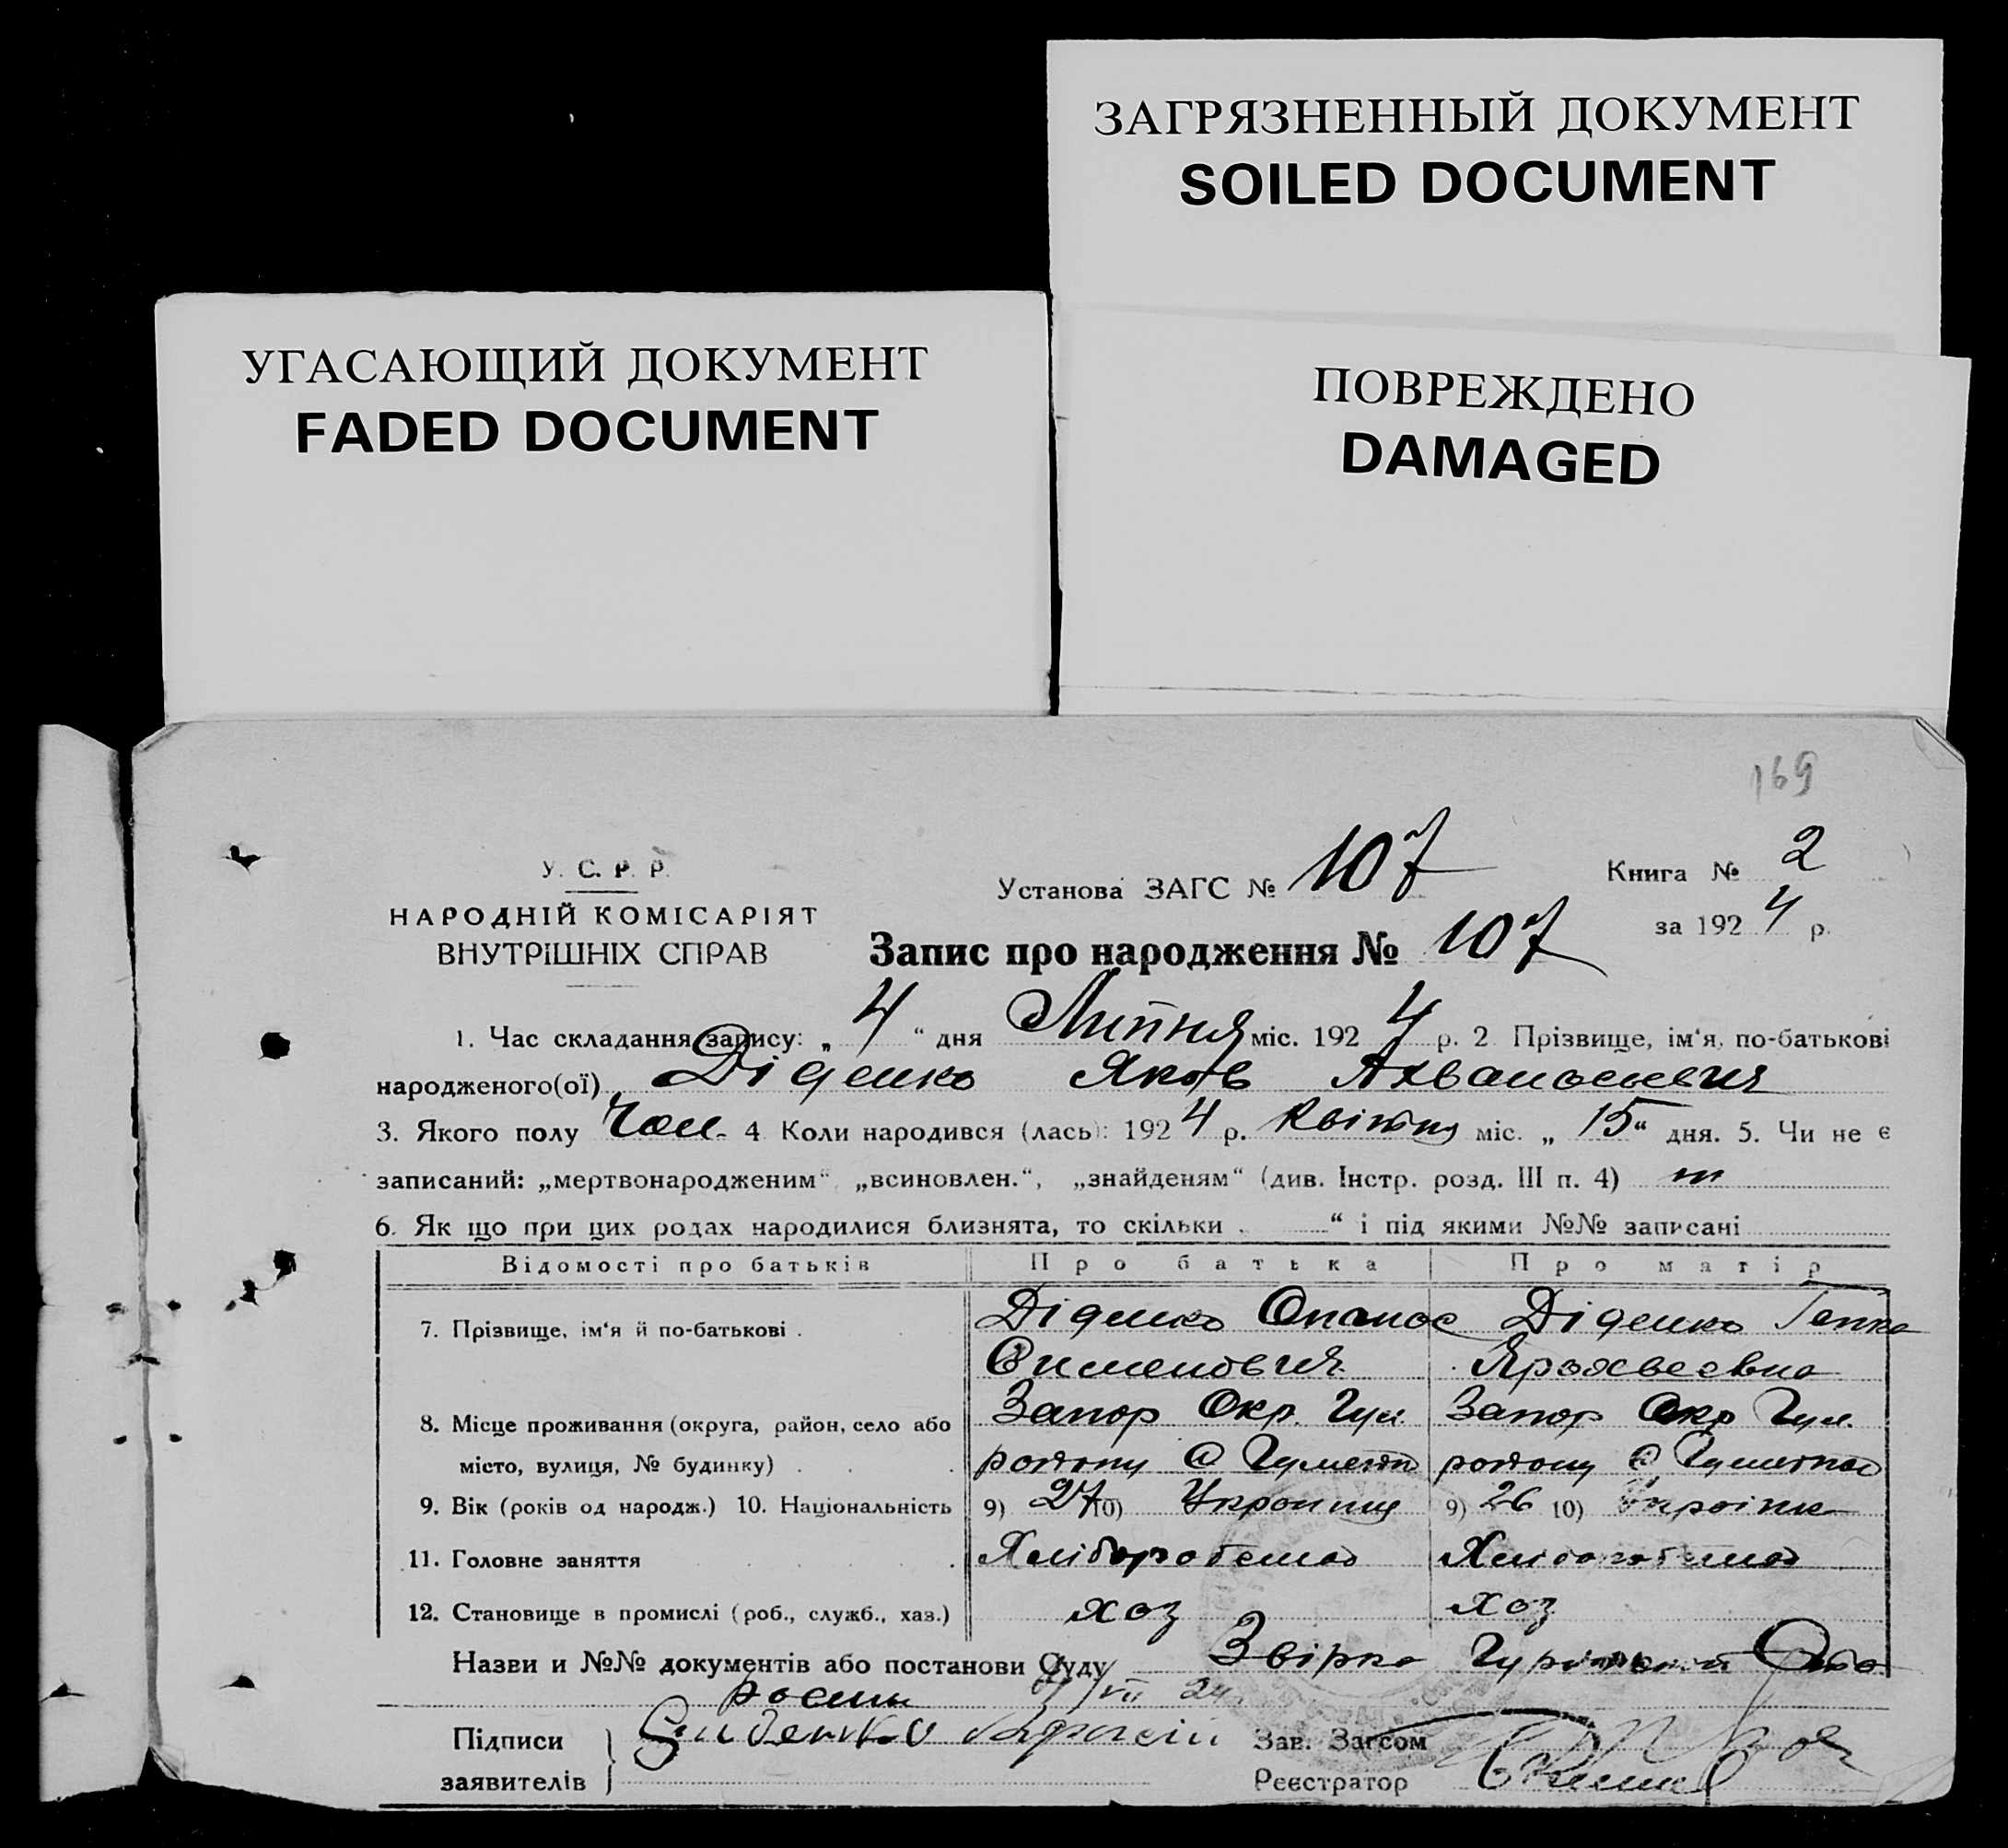 ЗАГРЯЗНЕННЫЙ ДОКУМЕНТ
SOILED DOCUMENT
УГАСАЮЩИЙ ДОКУМЕНТ
FADED DOCUMENT
ПОВРЕЖДЕНО
DAMAGED
169
У. С. Р. Р.
НАРОДНІЙ КОМІСАРІЯТ
ВНУТРІШНІХ СПРАВ
Установа ЗАГС № 107
Книга № 2
за 1924 р.
Запис про народження № 107
1. Час складання запису: „ 4 “ дня Липня міс. 1924 р. 2 Прізвище, ім‘я, по-батькові
народженого(ої) Діденко Яков
3. Якого полу Чол. 4 Коли народився (лась): 1924 р. Квітня міс. „ 15 “ дня. 5. Чи не є
записаний: „мертвонародженим“ „всиновлен.“, „знайденям“ (див. Інстр. розд. III п. 4)
6. Як що при цих родах народилися близнята, то скільки “ і під якими №№ записані
Відомості про батьків Про батька Про матір
7. Прізвище, ім‘я й по-батькові . Діденко Опанас Діденко Гапка
8. Місце проживання (округа, район, село або Запор Окр. Гул. Запор Окр Гул.
місто, вулиця, № будинку)
9. Вік (років од народж.) 10. Національність 9) 27 10) 9) 26 10)
11. Головне заняття
12. Становище в промислі (роб., служб., хаз.) хоз хоз
Назви и №№ документів або постанови Суду Звірка
/VII 24
Підписи
заявителів
Зав. Загсом
Реєстратор